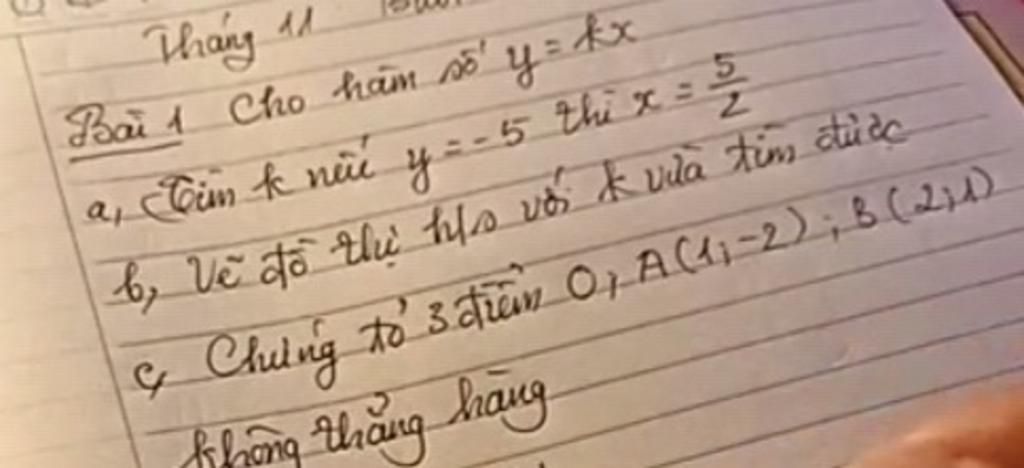 Tháng 11
Bài 1 Cho hàm số y = kx
a, Tìm k nếu y = -5 thì x = 5/2
b, Vẽ đồ thị h/s với k vừa tìm được
c, Chứng tỏ 3 điểm O, A(1;-2); B(2;1)
không thẳng hàng